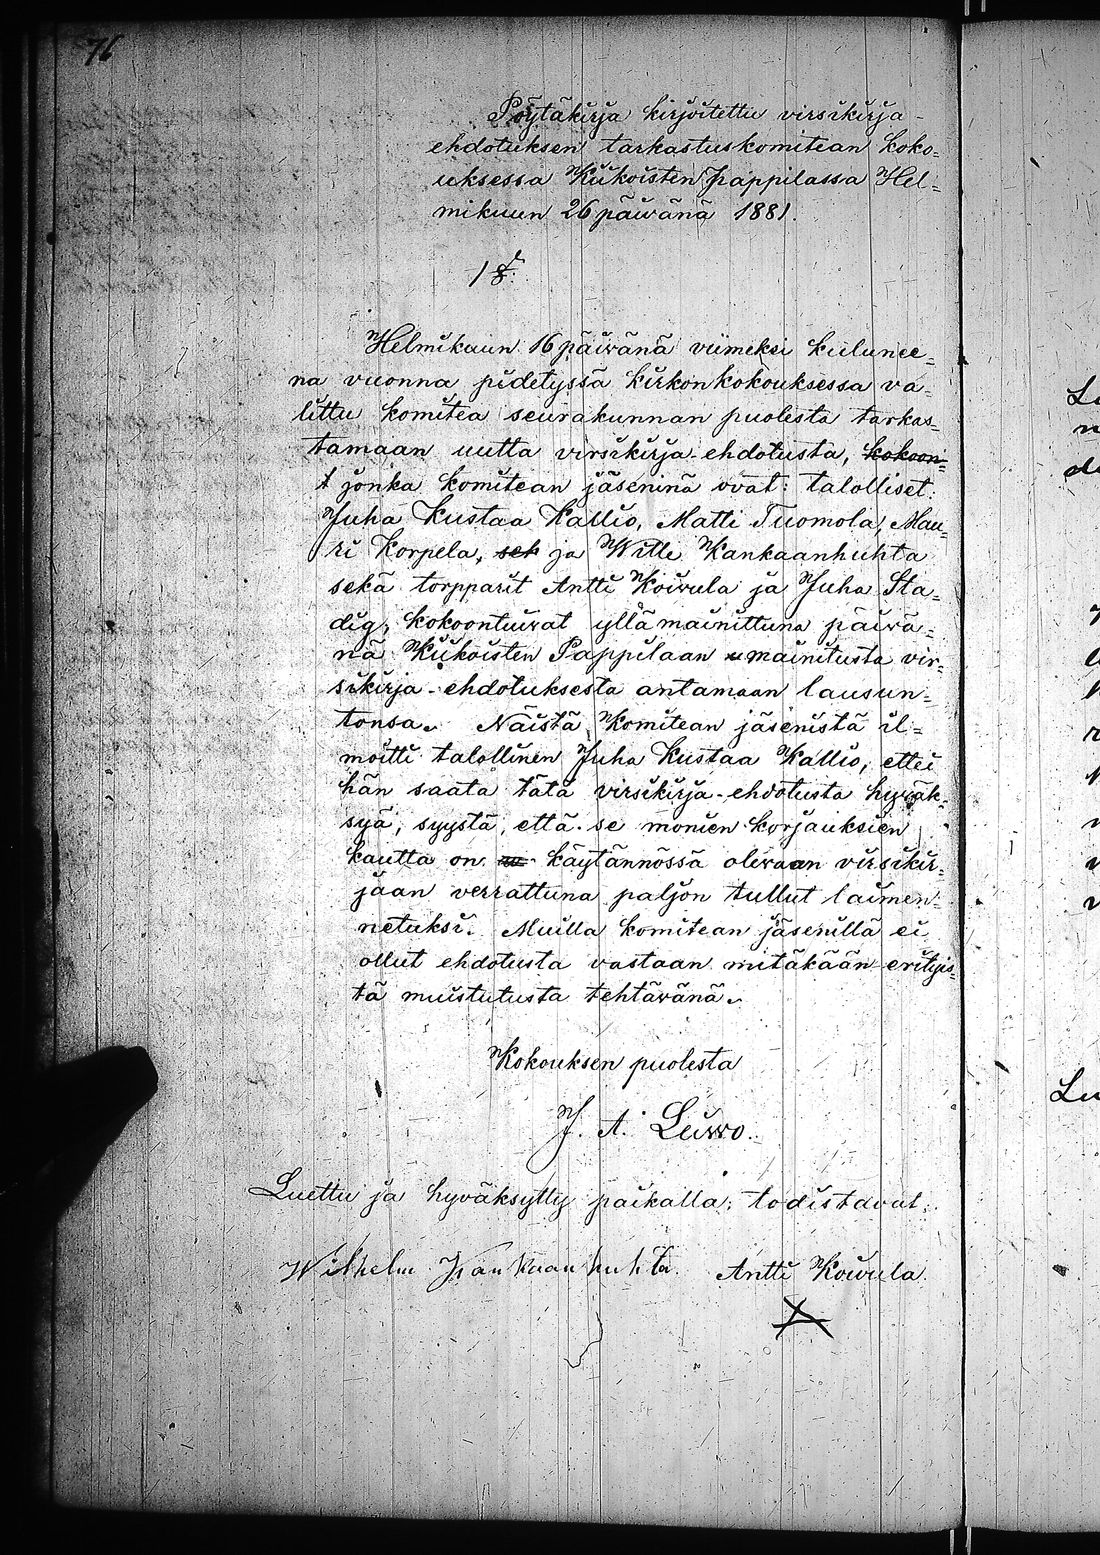 76
Pöytäkirja kirjoitettu virsikirja-
ehdotuksen tarkastuskomitean koko=
uksessa Kiikoisten pappilassa Hel=
mikuun 26 päiwänä 1881.
1 §.
Helmikuun 16 päiwänä viimeksi kulunee=
na vuonna pidetyssä kirkonkokouksessa va=
littu komitea seurakunnan puolesta tarkas=
tamaan uutta virsikirja-ehdotusta, kokoon=
t jonka komitean jäseninä ovat: talolliset:
Juha Kustaa Kallio, Matti Tuomola, Mau=
ri Korpela, sek ja Wille Kankaanhuhta
sekä torpparit Antti Koiwula ja Juha Sta=
dig, kokoontuiwat yllämainittuna päiwä=
nä Kiikoisten Pappilaan mainitusta vir=
sikirja-ehdotuksesta antamaan lausun=
tonsa. Näistä Komitean jäsenistä il=
moitti talollinen Juha Kustaa Kallio, ettei
hän saata tätä virsikirja-ehdotusta hyväk=
syä, syystä, että se monien korjauksien
kautta on käytännössä olewaan virsikir=
jaan verrattuna paljon tullut laimen=
netuksi. Muilla komitean jäsenillä ei
ollut ehdotusta vastaan mitäkään erityis=
tä muistutusta tehtäwänä.
Kokouksen puolesta
J. A. Leiwo.
Luettu ja hyväksytty paikalla; todistavat:
Wilhelm Kankaanhuhta. Antti Koiwula.